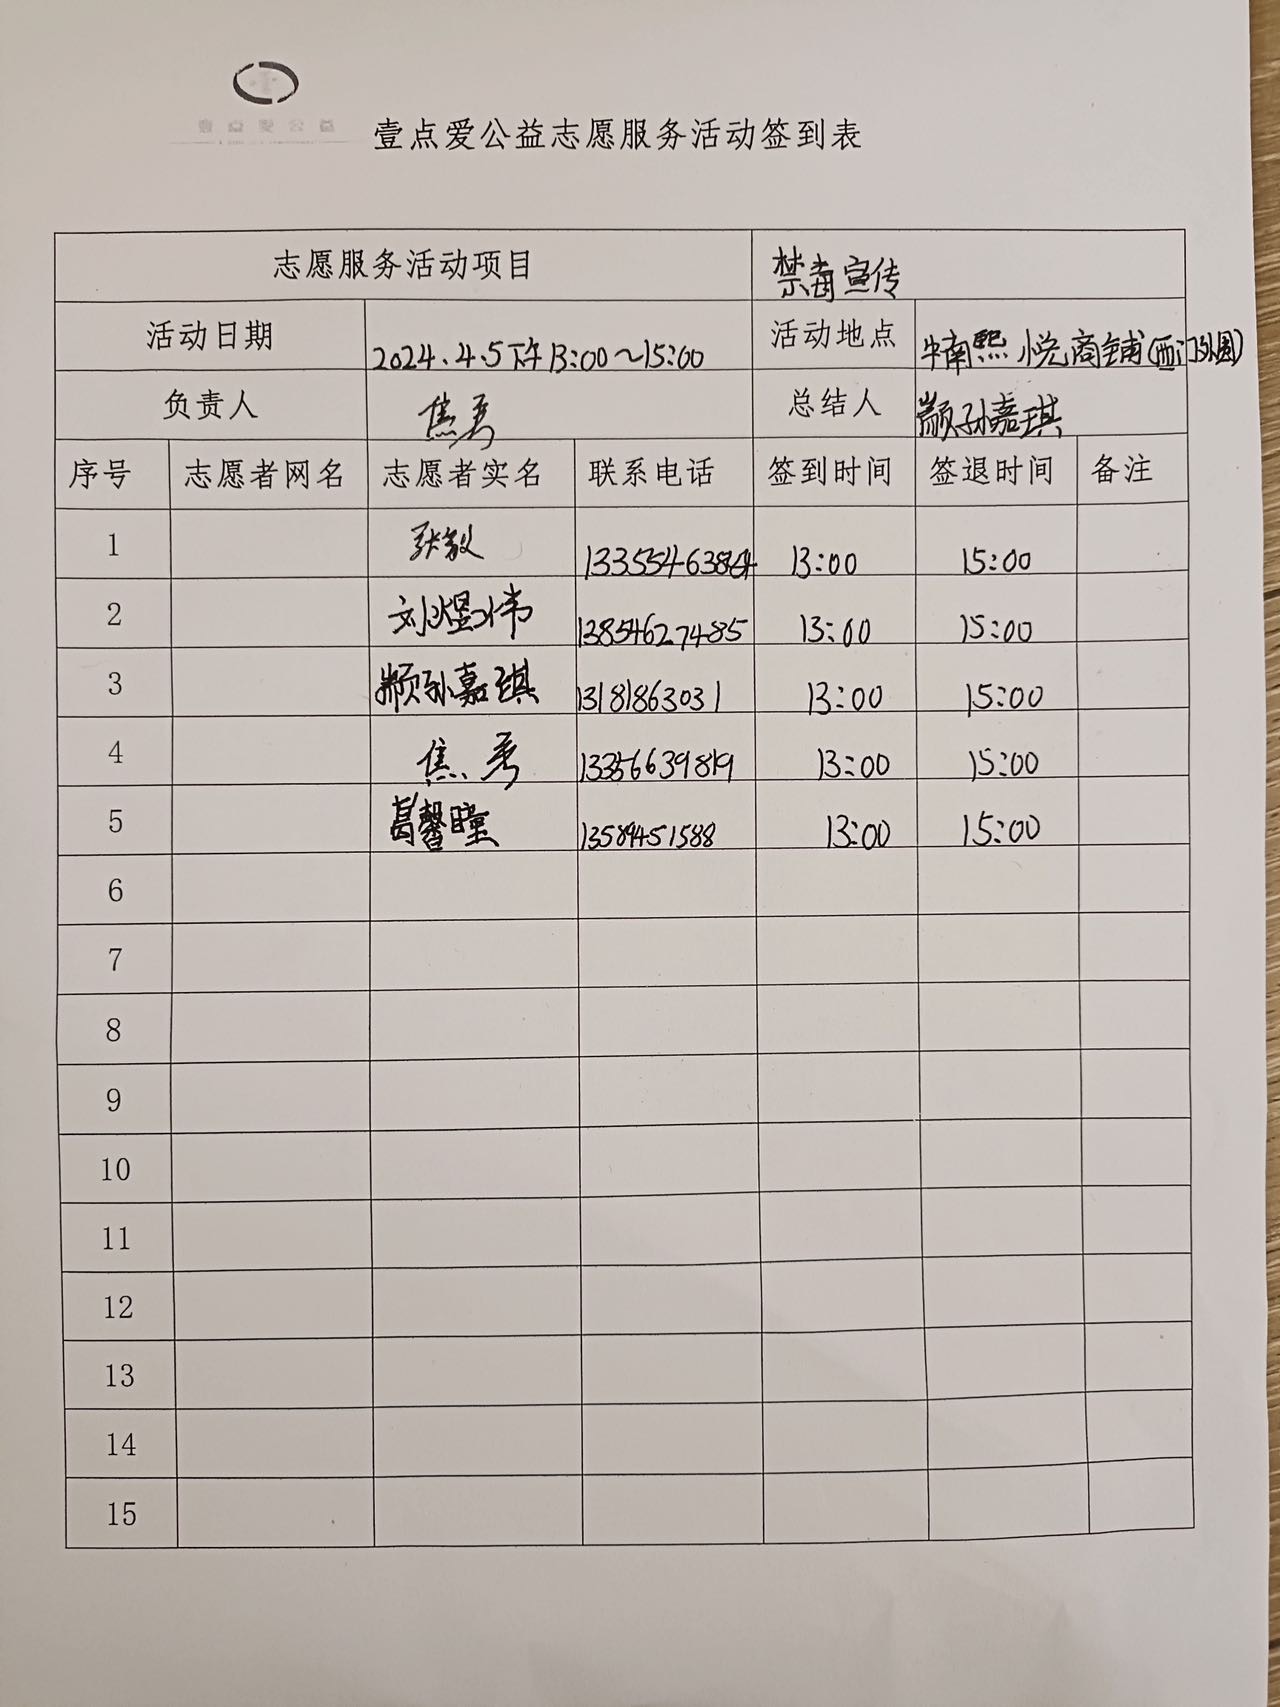 壹点爱公益
壹点爱公益志愿服务活动签到表
志愿服务活动项目 禁毒宣传
活动日期 2024.4.5下午13:00～15:00 活动地点 中南熙悦商铺(西门外围)
负责人 焦秀 总结人 颛孙嘉琪
序号 志愿者网名 志愿者实名 联系电话 签到时间 签退时间 备注
1 张敏 13:00 15:00
2 刘煜炜 13854627485 13:00 15:00
3 颛孙嘉琪 13181863031 13:00 15:00
4 焦秀 13356639819 13:00 15:00
5 葛馨瞳 13589451588 13:00 15:00
6
7
8
9
10
11
12
13
14
15